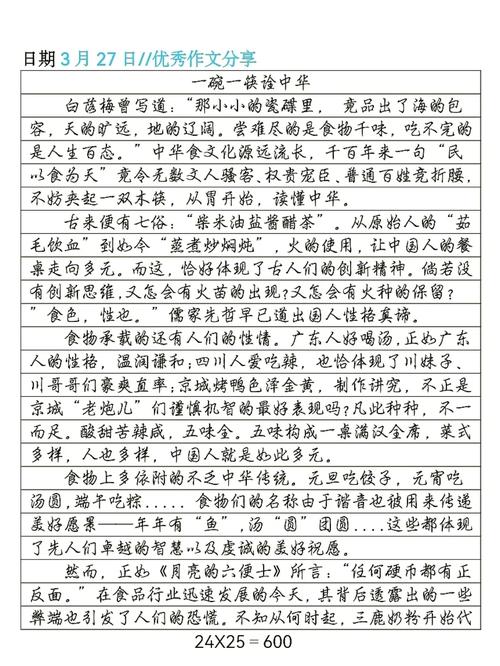 日期3月27日//优秀作文分享
一碗一筷诠中华
白落梅曾写道：“那小小的瓷碟里， 竟品出了海的包
容，天的旷远，地的辽阔。尝难尽的是食物千味，吃不完的
是人生百态。”中华食文化源远流长，千百年来一句“民
以食为天”竟令无数文人骚客、权贵宠臣、普通百姓竞折腰，
不妨夹起一双木筷，从胃开始，读懂中华。
古来便有七俗：“柴米油盐酱醋茶”。从原始人的“茹
毛饮血”到如今“蒸煮炒焖炖”，火的使用，让中国人的餐
桌走向多元。而这，恰好体现了古人们的创新精神。倘若没
有创新思维，又怎会有火苗的出现？又怎会有火种的保留？
”食色，性也。”儒家先哲早已道出国人性格真谛。
食物承载的还有人们的性情。广东人好喝汤，正如广东
人的性格，温润谦和；四川人爱吃辣，也恰体现了川妹子、
川哥哥们豪爽直率；京城烤鸭色泽金黄，制作讲究，不正是
京城“老炮儿”们谨慎机智的最好表现吗？凡此种种，不一
而足。酸甜苦辣咸，五味全。五味构成一桌满汉全席，菜式
多样，人也多样，中国人就是如此多元。
食物上多依附的不乏中华传统。元旦吃饺子，元宵吃
汤圆，端午吃粽..... 食物们的名称由于谐音也被用来传递
美好愿景——年年有“鱼”，汤“圆”团圆....这些都体现
了先人们卓越的智慧以及虔诚的美好祝愿。
然而，正如《月亮的六便士》所言：“任何硬币都有正
反面。”在食品行业迅速发展的今天，其背后透露出的一些
弊端也引发了人们的恐慌。不知从何时起，三鹿奶粉开始代
24X25=600